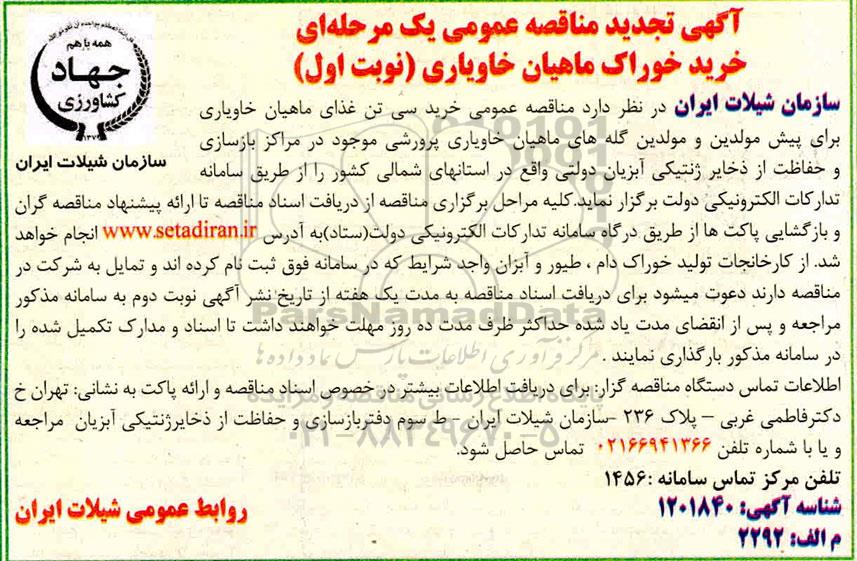 آگهی تجدید مناقصه عمومی یک مرحله‌ای
خرید خوراک ماهیان خاویاری (نوبت اول)
همه با هم
جهاد
کشاورزی
سازمان شیلات ایران
سازمان شیلات ایران در نظر دارد مناقصه عمومی خرید سی تن غذای ماهیان خاویاری
برای پیش مولدین و مولدین گله های ماهیان خاویاری پرورشی موجود در مراکز بازسازی
و حفاظت از ذخایر ژنتیکی آبزیان دولتی واقع در استانهای شمالی کشور را از طریق سامانه
تدارکات الکترونیکی دولت برگزار نماید.کلیه مراحل برگزاری مناقصه از دریافت اسناد مناقصه تا ارائه پیشنهاد مناقصه گران
و بازگشایی پاکت ها از طریق درگاه سامانه تدارکات الکترونیکی دولت(ستاد)به آدرس www.setadiran.ir انجام خواهد
شد. از کارخانجات تولید خوراک دام ، طیور و آبزان واجد شرایط که در سامانه فوق ثبت نام کرده اند و تمایل به شرکت در
مناقصه دارند دعوت میشود برای دریافت اسناد مناقصه به مدت یک هفته از تاریخ نشر آگهی نوبت دوم به سامانه مذکور
مراجعه و پس از انقضای مدت یاد شده حداکثر ظرف مدت ده روز مهلت خواهند داشت تا اسناد و مدارک تکمیل شده را
در سامانه مذکور بارگذاری نمایند .
اطلاعات تماس دستگاه مناقصه گزار: برای دریافت اطلاعات بیشتر در خصوص اسناد مناقصه و ارائه پاکت به نشانی: تهران خ
دکترفاطمی غربی – پلاک ۲۳۶ -سازمان شیلات ایران - ط سوم دفتربازسازی و حفاظت از ذخایرژنتیکی آبزیان مراجعه
و یا با شماره تلفن ۰۲۱۶۶۹۴۱۳۶۶ تماس حاصل شود.
تلفن مرکز تماس سامانه :۱۴۵۶
شناسه آگهی: ۱۲۰۱۸۴۰
م الف: ۲۲۹۲
روابط عمومی شیلات ایران
ParsNamadData
مرکز فرآوری اطلاعات پارس نماد داده ها
پایگاه اطلاع رسانی مناقصه و مزایده
۰۲۱-۸۸۳۴۹۶۷۰-۵